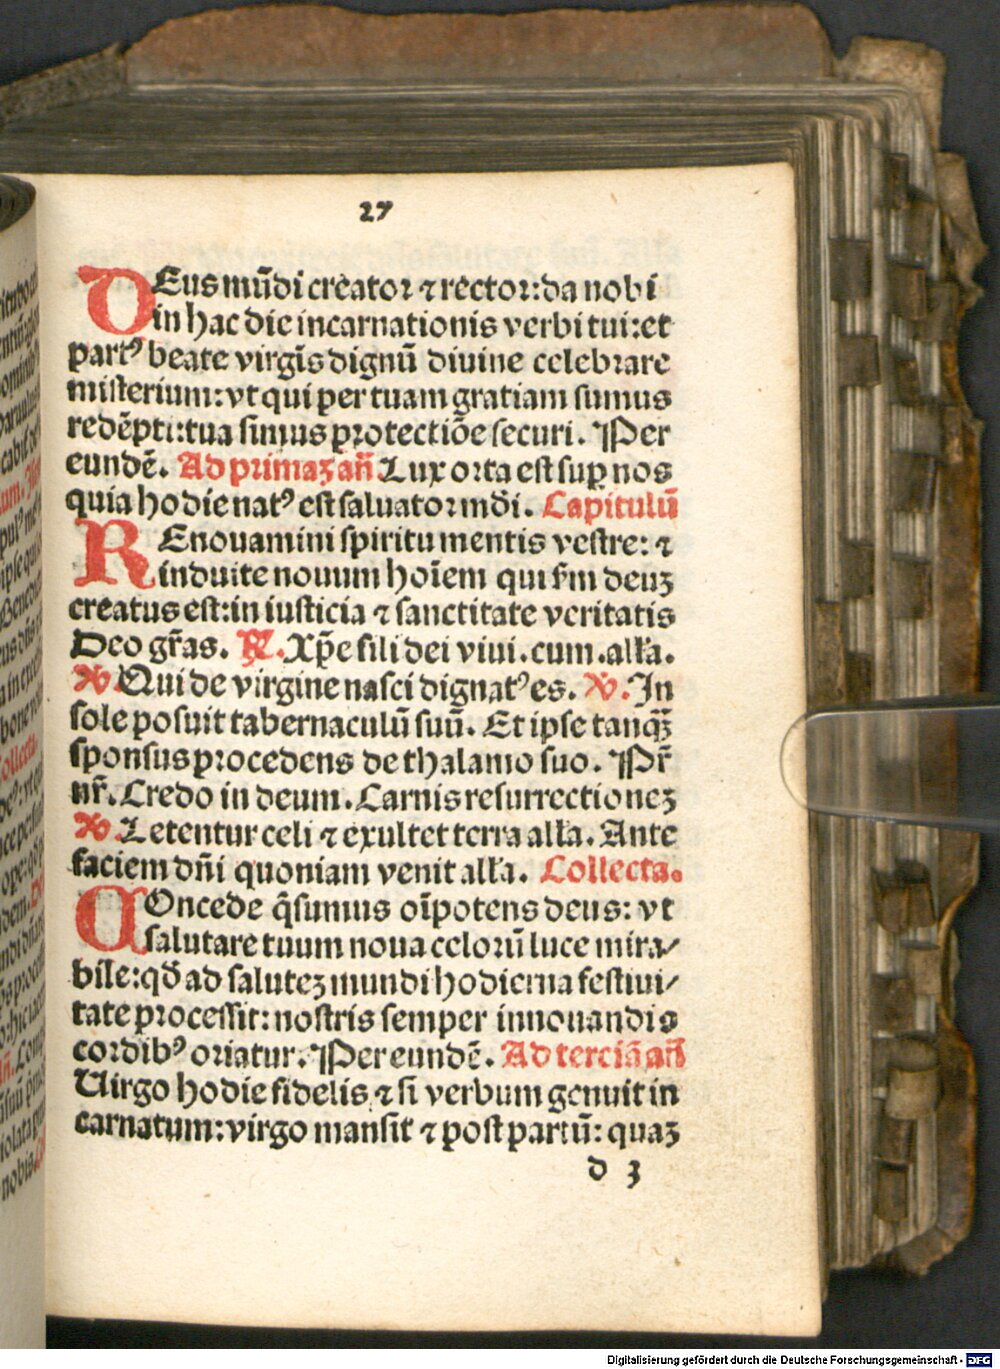 27
DEus mūdi creator ⁊ rector: da nobi
in hac die incarnationis verbi tui: et
partꝰ beate virgīs dignū diuine celebrare
misterium: vt qui per tuam gratiam sumus
redēpti: tua simus protectiōe securi. Per
eundē. Ad primaꝫ an̄ Lux orta est suꝑ nos
quia hodie natꝰ est saluator mdi. Capitulū
REnouamini spiritu mentis vestre: ⁊
induite nouum hoīem qui s̄m deuꝫ
creatus est: in iusticia ⁊ sanctitate veritatis
Deo gr̄as. ℟. Xp̄e fili dei viui. cum. alla.
℣. Qui de virgine nasci dignatꝰ es. ℣. In
sole posuit tabernaculū suū. Et ipse tanqꝫ
sponsus procedens de thalamo suo. Pr̄
nr̄. Credo in deum. Carnis resurrectioneꝫ
℣. Letentur celi ⁊ exultet terra alla. Ante
faciem dn̄i quoniam venit alla. Collecta.
COncede q̄sumus oīpotens deus: vt
salutare tuum noua celorū luce mira/
bile: qđ ad saluteꝫ mundi hodierna festiui/
tate processit: nostris semper innouandis
cordibꝰ oriatur. Per eundē. Ad terciā an̄
Uirgo hodie fidelis ⁊ si verbum genuit in
carnatum: virgo mansit ⁊ post partū: quaꝫ
d 3
Digitalisierung gefördert durch die Deutsche Forschungsgemeinschaft - DFG